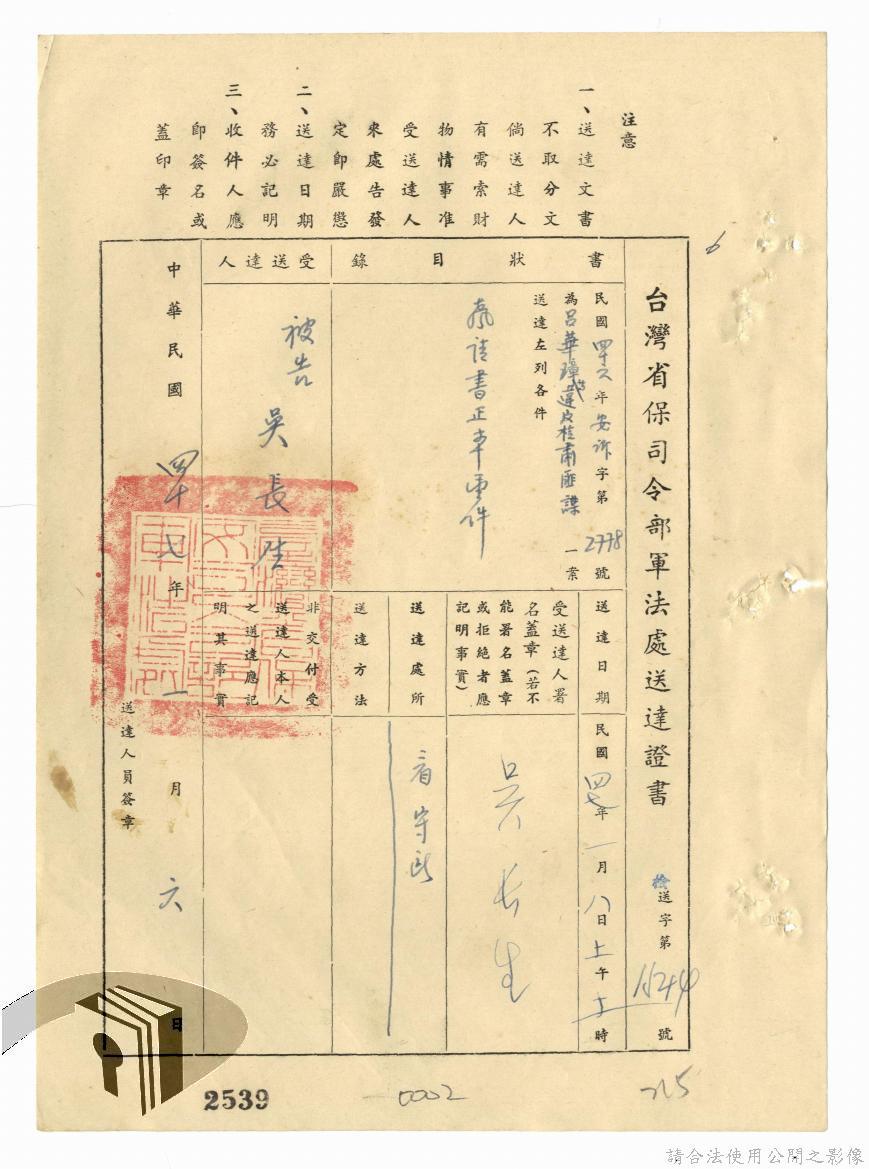 注意
一、送達文書
不取分文
倘送達人
有需索財
物情事准
受送達人
來處告發
定即嚴懲
二、送達日期
務必記明
三、收件人應
即簽名或
蓋印章
6
台灣省保司令部軍法處送達證書
檢送字第1544號
書狀目錄
民國四六年安訴字第2778號
為呂華璋等一案
送達左列各件
書正本壹件
受送達人
被告 吳長生
送達日期
民國四七年一月八日上午十時
受送達人署
名蓋章(若不
能署名蓋章
或拒絕者應
記明事實)
吳長生
送達處所
看守所
送達方法
非交付受
送達人本人
之送達應記
明其事實
中華民國四十七年一月六日
送達人員簽章
2539
0002
請合法使用公開之影像